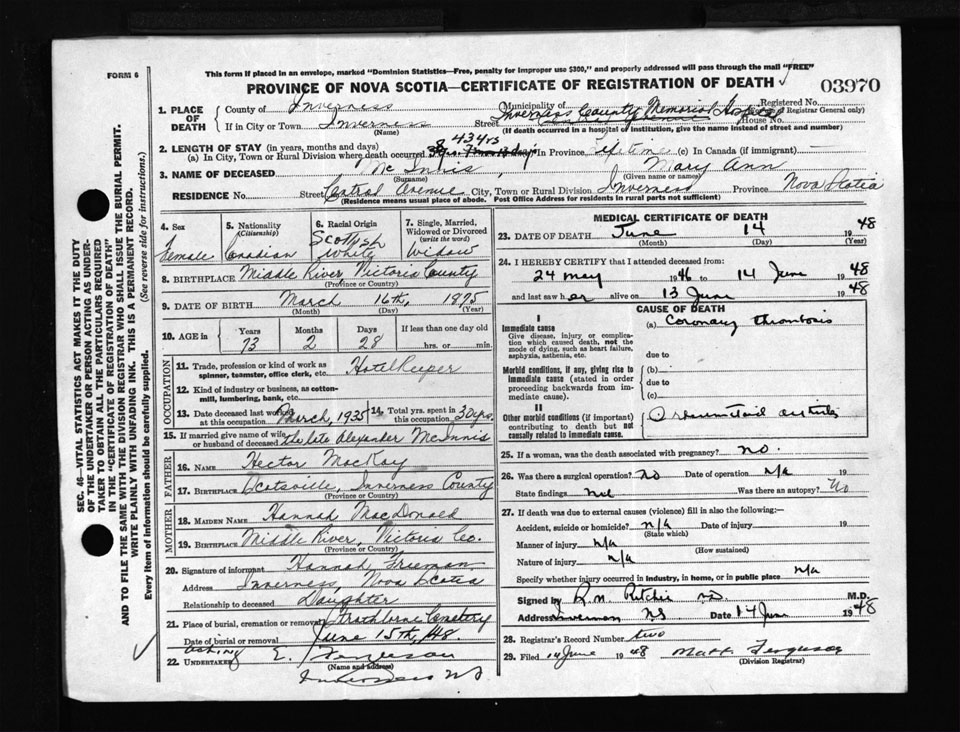 FORM 6
This form if placed in an envelope, marked "Dominion Statistics—Free, penalty for improper use $300," and properly addressed will pass through the mail "FREE"
PROVINCE OF NOVA SCOTIA—CERTIFICATE OF REGISTRATION OF DEATH
03970
SEC. 46—VITAL STATISTICS ACT MAKES IT THE DUTY
OF THE UNDERTAKER OR PERSON ACTING AS UNDER-
TAKER TO OBTAIN ALL THE PARTICULARS REQUIRED
IN THE "CERTIFICATE OF REGISTRATION OF DEATH"
AND TO FILE THE SAME WITH THE DIVISION REGISTRAR WHO SHALL ISSUE THE BURIAL PERMIT.
WRITE PLAINLY WITH UNFADING INK. THIS IS A PERMANENT RECORD.
Every item of information should be carefully supplied. (See reverse side for instructions.)
1. PLACE OF DEATH
County of Inverness
Municipality of
Registered No.
(Registrar General only)
If in City or Town Inverness
(Name)
Street Inverness County Memorial Hospital
House No.
(If death occurred in a hospital or institution, give the name instead of street and number)
2. LENGTH OF STAY (in years, months and days)
(a) In City, Town or Rural Division where death occurred 43 yrs (b) In Province Lifetime (c) In Canada (if immigrant) —
3. NAME OF DECEASED McInnis, Mary Ann
(Surname) (Given name or names)
RESIDENCE No. Street Central Avenue City, Town or Rural Division Inverness Province Nova Scotia
(Residence means usual place of abode. Post Office Address for residents in rural parts not sufficient)
4. Sex Female
5. Nationality (Citizenship) Canadian
6. Racial Origin Scottish White
7. Single, Married, Widowed or Divorced (write the word) Widow
8. BIRTHPLACE Middle River Victoria County
(Province or Country)
9. DATE OF BIRTH March 16th, 1875
(Month) (Day) (Year)
10. AGE in Years Months Days If less than one day old
73 2 28 hrs. or min.
OCCUPATION
11. Trade, profession or kind of work as
spinner, teamster, office clerk, etc. Hotel Keeper
12. Kind of industry or business, as cotton-
mill, lumbering, bank, etc.
13. Date deceased last worked at this occupation March, 1935
14. Total yrs. spent in this occupation 30 yrs.
15. If married give name of wife or husband of deceased the late Alexander McInnis
FATHER
16. NAME Hector MacKay
17. BIRTHPLACE Scotsville, Inverness County
(Province or Country)
MOTHER
18. MAIDEN NAME Hannah MacDonald
19. BIRTHPLACE Middle River, Victoria Co.
(Province or Country)
20. Signature of informant Hannah Freeman
Address Inverness, Nova Scotia
Relationship to deceased Daughter
21. Place of burial, cremation or removal Strathlorne Cemetery
Date of burial or removal June 15th, 1948
acting
22. UNDERTAKER E. Ferguson
(Name and address)
Inverness NS
MEDICAL CERTIFICATE OF DEATH
23. DATE OF DEATH June 14 1948
(Month) (Day) (Year)
24. I HEREBY CERTIFY that I attended deceased from:
24 May 1946 to 14 June 1948
and last saw her alive on 13 June 1948
CAUSE OF DEATH
I
Immediate cause
Give disease, injury or complica-
tion which caused death, not the
mode of dying, such as heart failure,
asphyxia, asthenia, etc.
(a) Coronary thrombosis
due to
Morbid conditions, if any, giving rise to
immediate cause (stated in order
proceeding backwards from im-
mediate cause).
(b)
due to
(c)
II
Other morbid conditions (if important)
contributing to death but not
causally related to immediate cause.
Rheumatoid arthritis
25. If a woman, was the death associated with pregnancy? no.
26. Was there a surgical operation? no Date of operation n/a 19
State findings nil Was there an autopsy? no
27. If death was due to external causes (violence) fill in also the following:—
Accident, suicide or homicide? n/a Date of injury 19
(State which)
Manner of injury n/a
(How sustained)
Nature of injury n/a
Specify whether injury occurred in industry, in home, or in public place n/a
Signed by R.M. Ritchie MD M.D.
Address Inverness NS Date 14 June 1948
28. Registrar's Record Number two
29. Filed 14 June 1948 Ferguson
(Division Registrar)